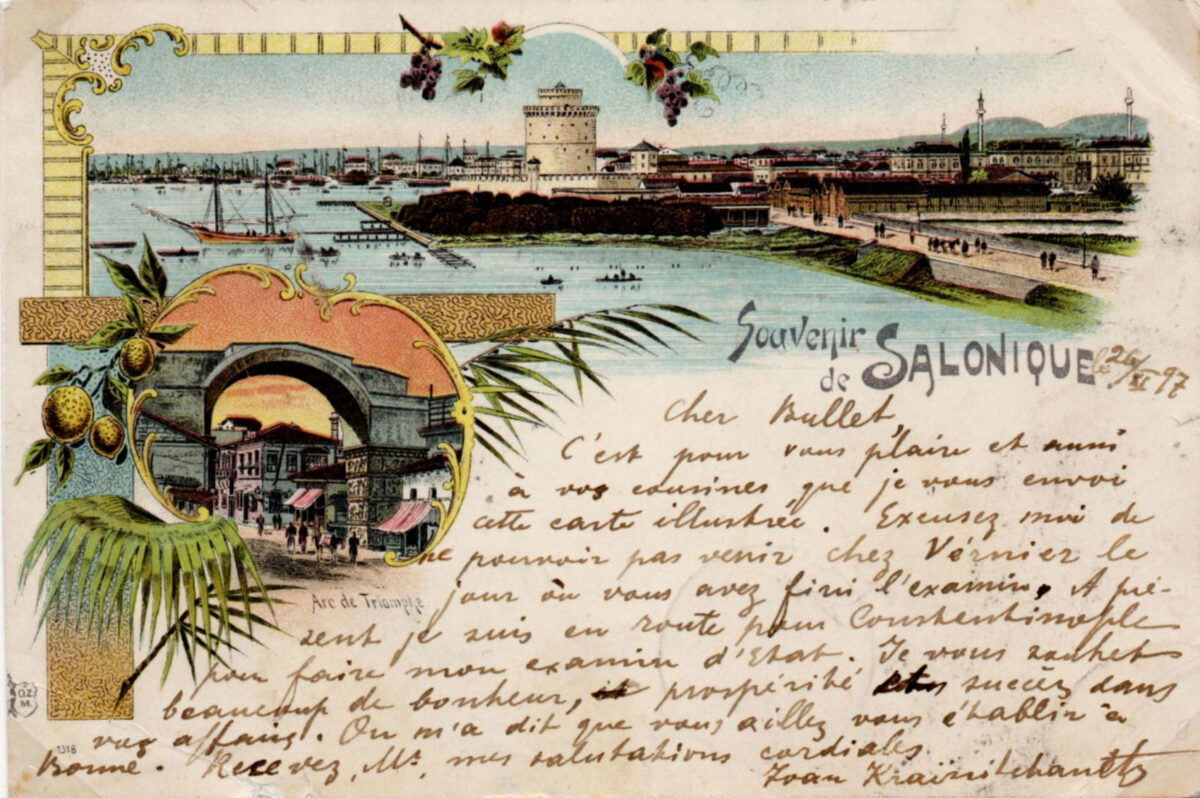 Souvenir
de SALONIQUE
le 26/XI 97
Cher Bullet,
C'est pour vous plaire et aussi
à vos cousines, que je vous envoi
cette carte illustrée. Excusez moi de
ne pouvoir pas venir chez Vérnier le
jour où vous avez fini l'examin. A pré-
sent je suis en route pour Constentinople
pour faire mon examin d'Etat. Je vous souhet
beaucoup de bonheur, prospérité succèz dans
vos affairs. On m'a dit que vous aillez vous établir à
Bonne. Recevez, Mr, mes salutations cordiales
Ivan
Arc de Triomphe
O.Z.
M.
1318